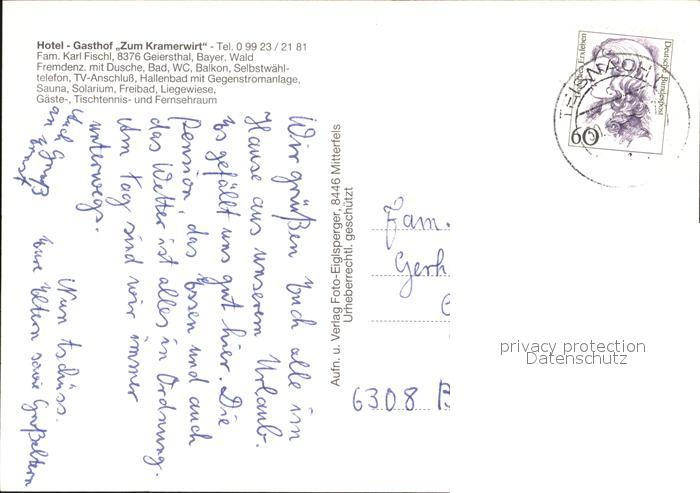 Hotel - Gasthof „Zum Kramerwirt“ - Tel. 0 99 23 / 21 81
Fam. Karl Fischl, 8376 Geiersthal, Bayer. Wald
Fremdenz. mit Dusche, Bad, WC, Balkon, Selbstwähl-
telefon, TV-Anschluß, Hallenbad mit Gegenstromanlage,
Sauna, Solarium, Freibad, Liegewiese,
Gäste-, Tischtennis- und Fernsehraum
Wir grüßen Euch alle im
Hause aus unserem Urlaub.
Es gefällt uns gut hier. Die
Pension, das Essen und auch
das Wetter ist alles in Ordnung.
Am Tag sind wir immer
unterwegs.
Nun tschüss.
Eure Eltern sowie Großeltern
Auch Gruß
an Ernst
Aufn. u. Verlag Foto-Eiglsperger, 8446 Mitterfels
Urheberrechtl. geschützt
Deutsche Bundespost
60
Fam.
Gerh
6308 B
privacy protection
Datenschutz